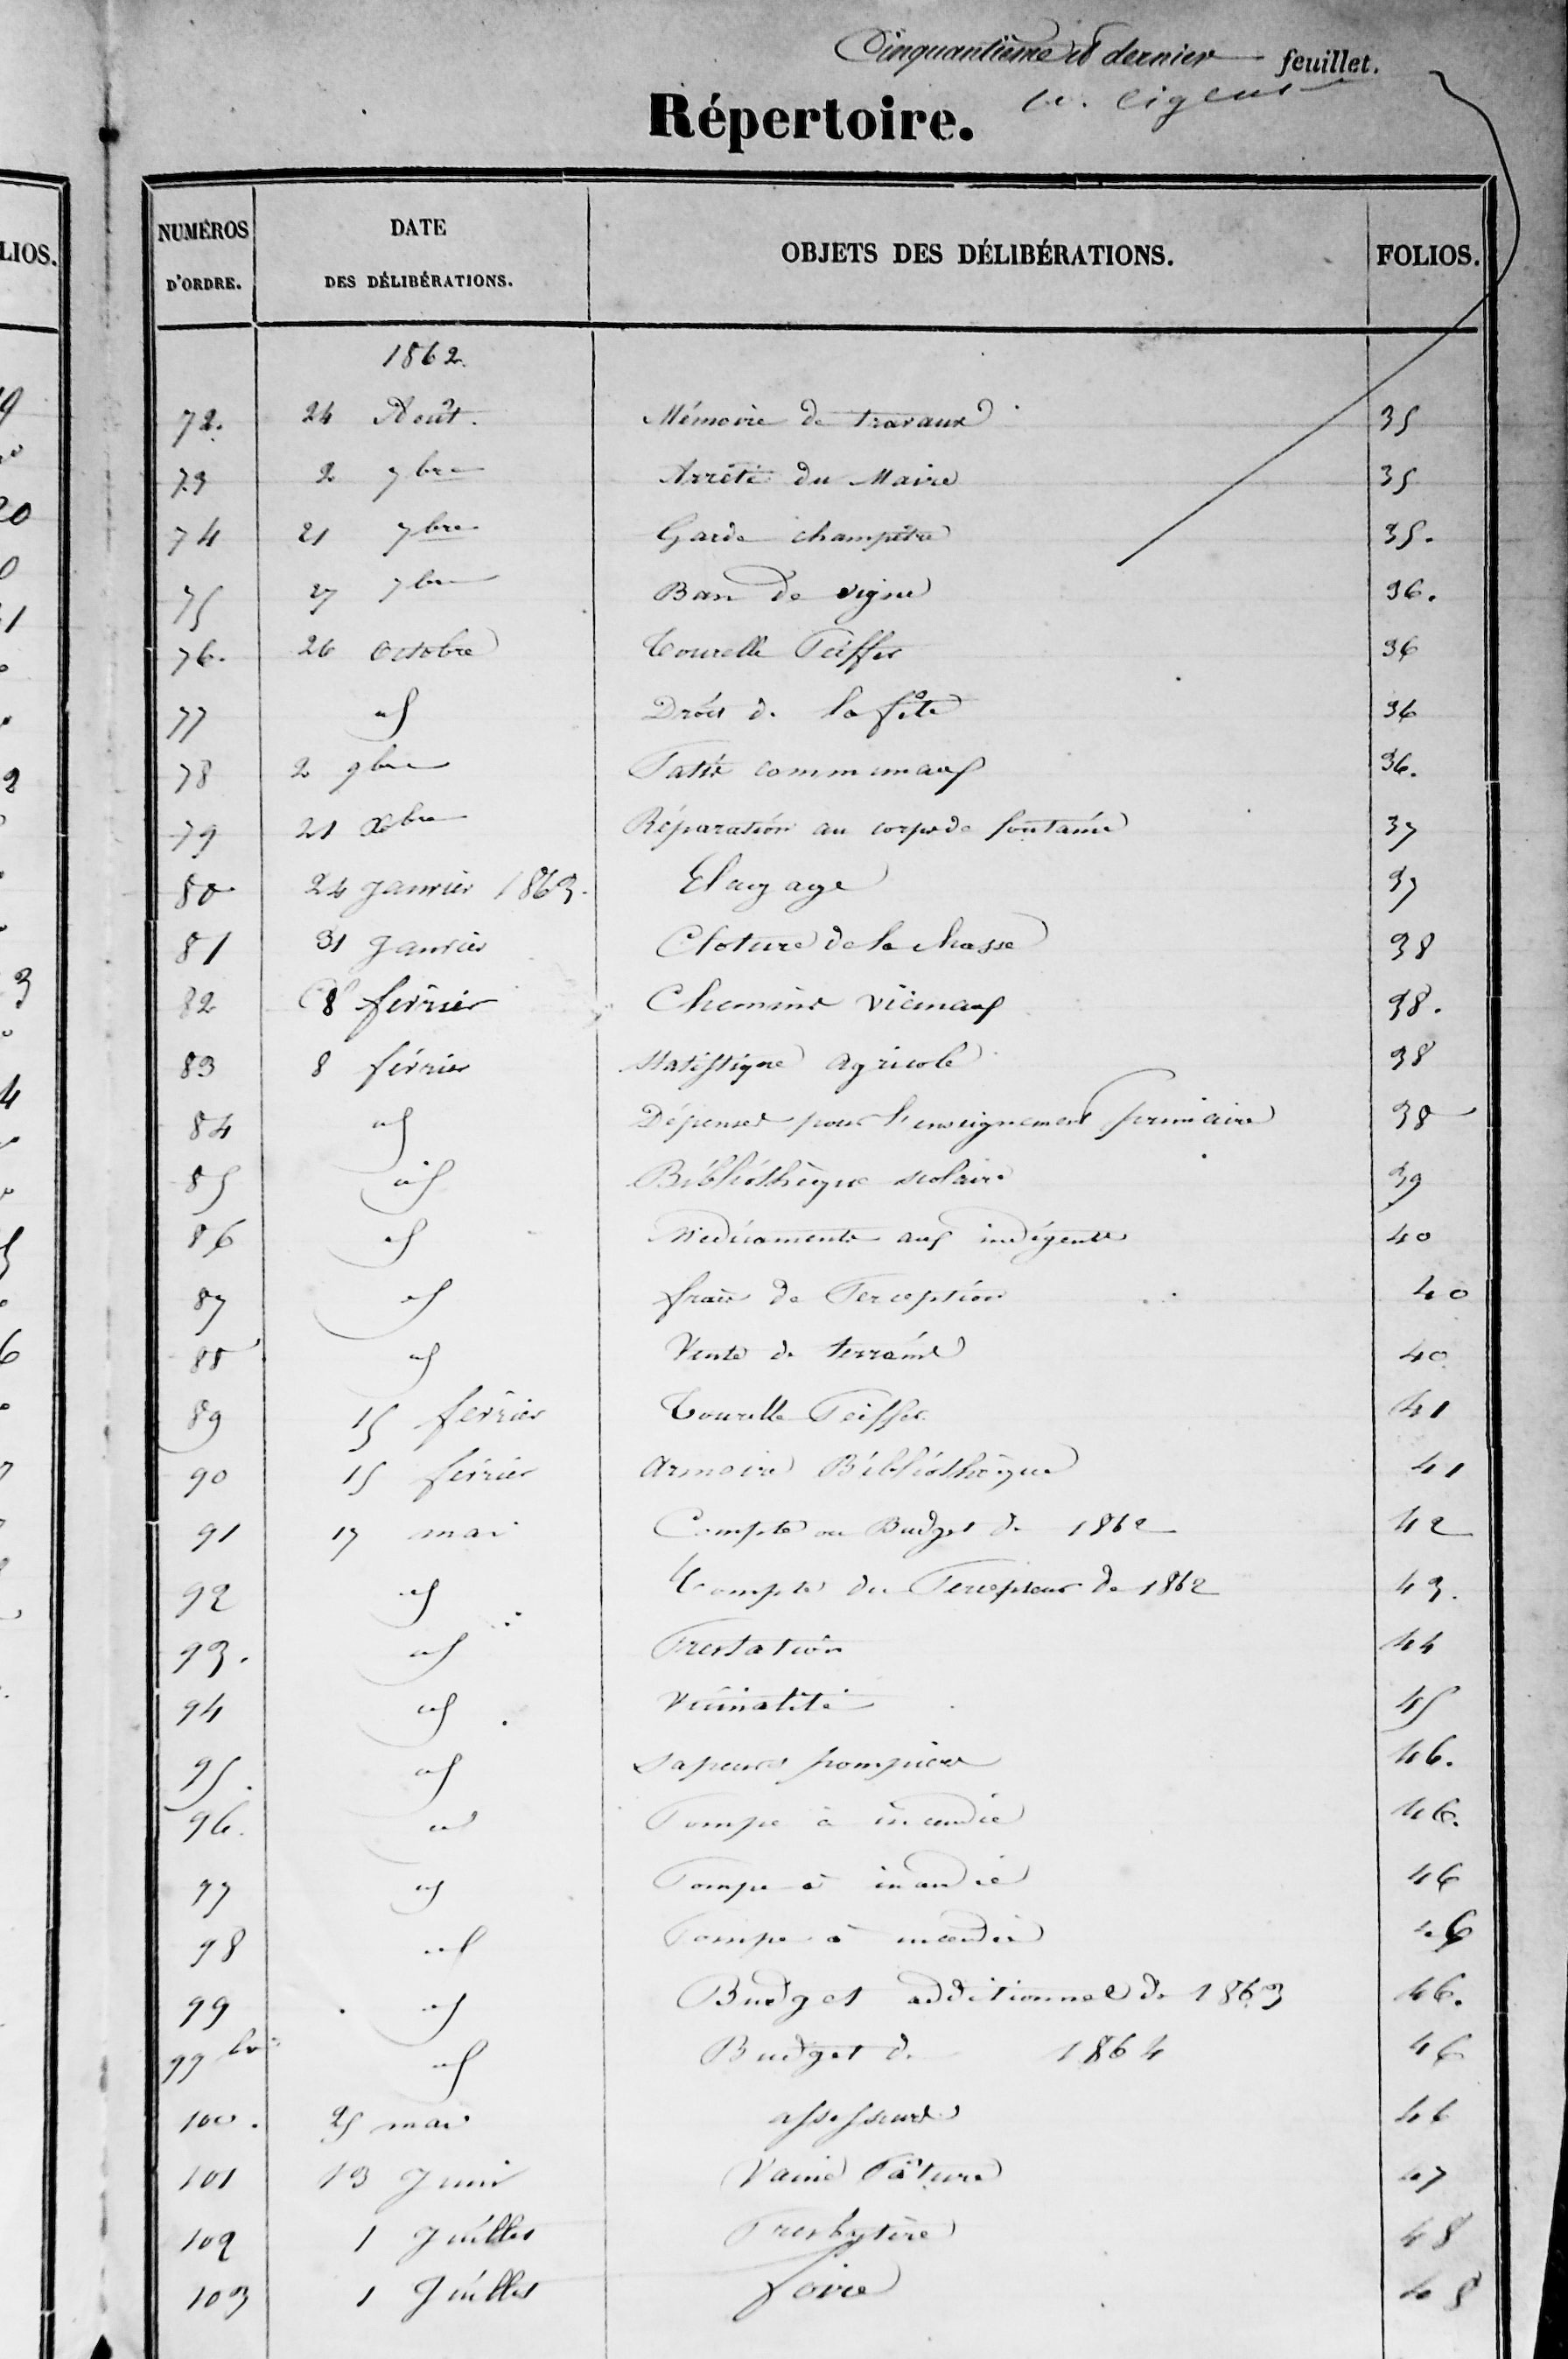 Cinquantième et dernier feuillet.
Répertoire.
LIOS.
NUMÉROS D'ORDRE. DATE DES DÉLIBÉRATIONS. OBJETS DES DÉLIBÉRATIONS. FOLIOS.
1862.
72. 24 Août. Mémoire de travaux 35
73 2 7bre Arrêté du Maire 35
74 21 7bre Garde champêtre 35.
75 27 7bre Ban de vigne 36.
76. 26 Octobre Tourelle Peiffer 36
77 id Droit de la fête 36
78 2 9bre Patis communaux 36.
79 21 Xbre Réparation au corps de fontaine 37
80 24 Janvier 1863. Elagage 37
81 31 Janvier Cloture de la chasse 38
82 8 février Chemins vicinaux 38.
83 8 février Statistique agricole 38
84 id Dépenses pour l'enseignement primaire 38
85 id Bibliothèque scolaire 39
86 id Médicaments aux indigents 40
87 id frais de Perception 40
88 id Vente de terrains 40
89 15 février Tourelle Peiffer 41
90 15 février Armoire Bibliothèque 41
91 17 mai Compte au Budget de 1862 42
92 id Compte du Percepteur de 1862 43.
93. id Prestation 44
94 id Vicinalité 45
95. id Sapeurs pompiers 46.
96. id Pompe à incendie 46.
97 id Pompe à incendie 46
98 id Pompe à incendie 46
99 id Budget additionnel de 1863 46.
99 bis id Budget de 1864 46
100. 25 mai assesseurs 46
101 13 Juin Vaine Pâture 47
102 1 Juillet Presbytère 48
103 1 Juillet foire 48